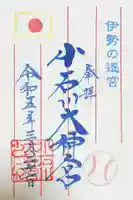 伊勢の遥宮
奉拝
小石川大神宮
令和五年三月二十二日